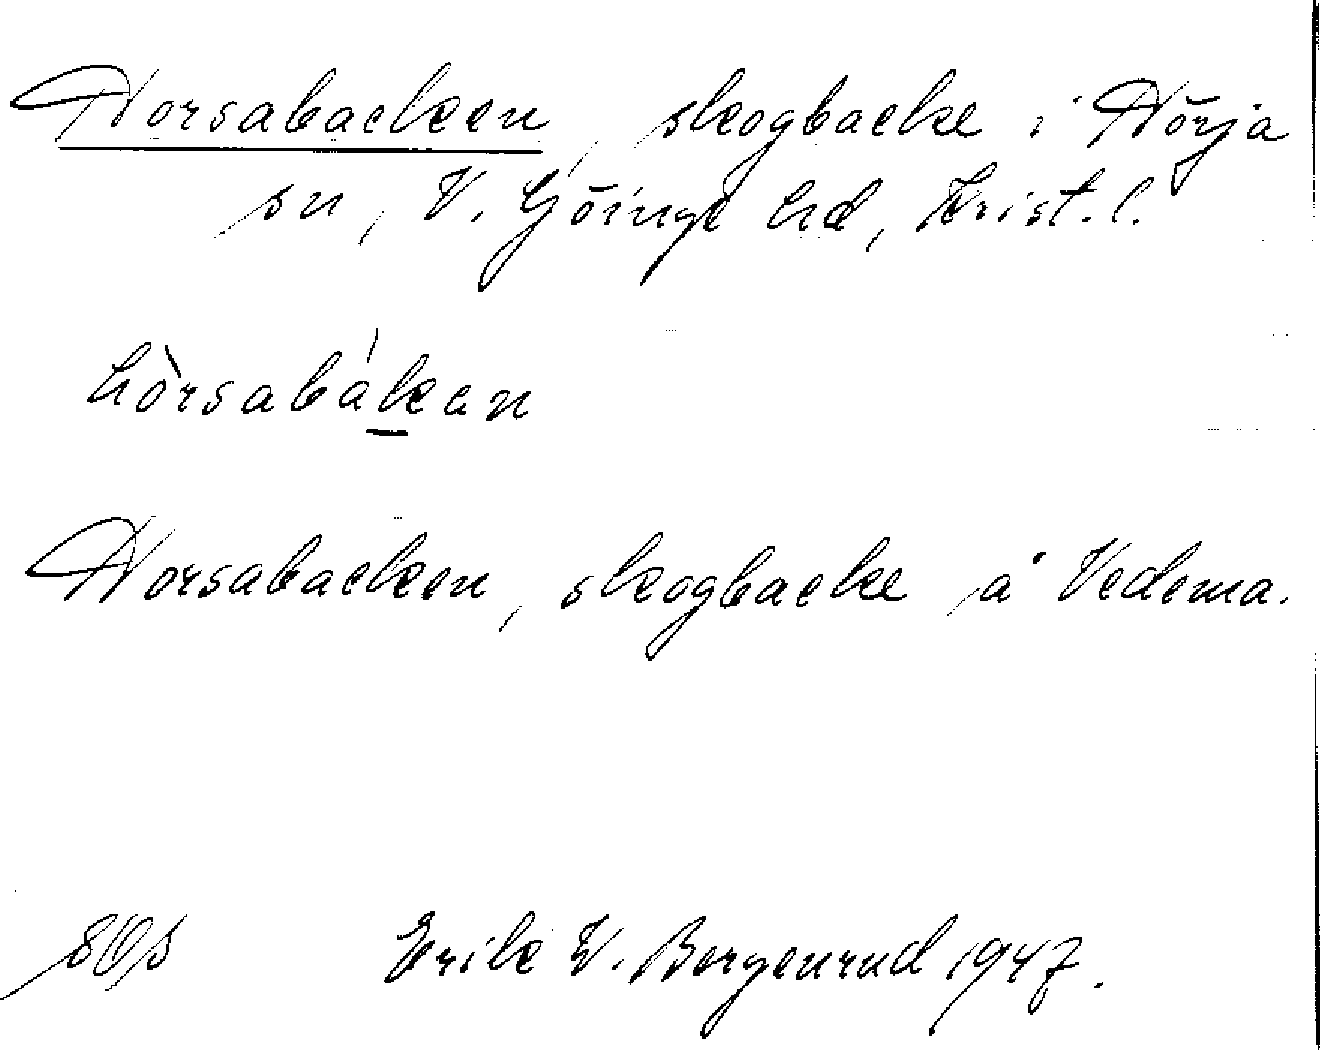 Horsabacken, skogbacke i Hörja
sn, V. Göinge hd, Krist. l.
hòrsabákan
Horsabacken, skogbacke å Vedema.
Erik W. Borgenrud 1947.